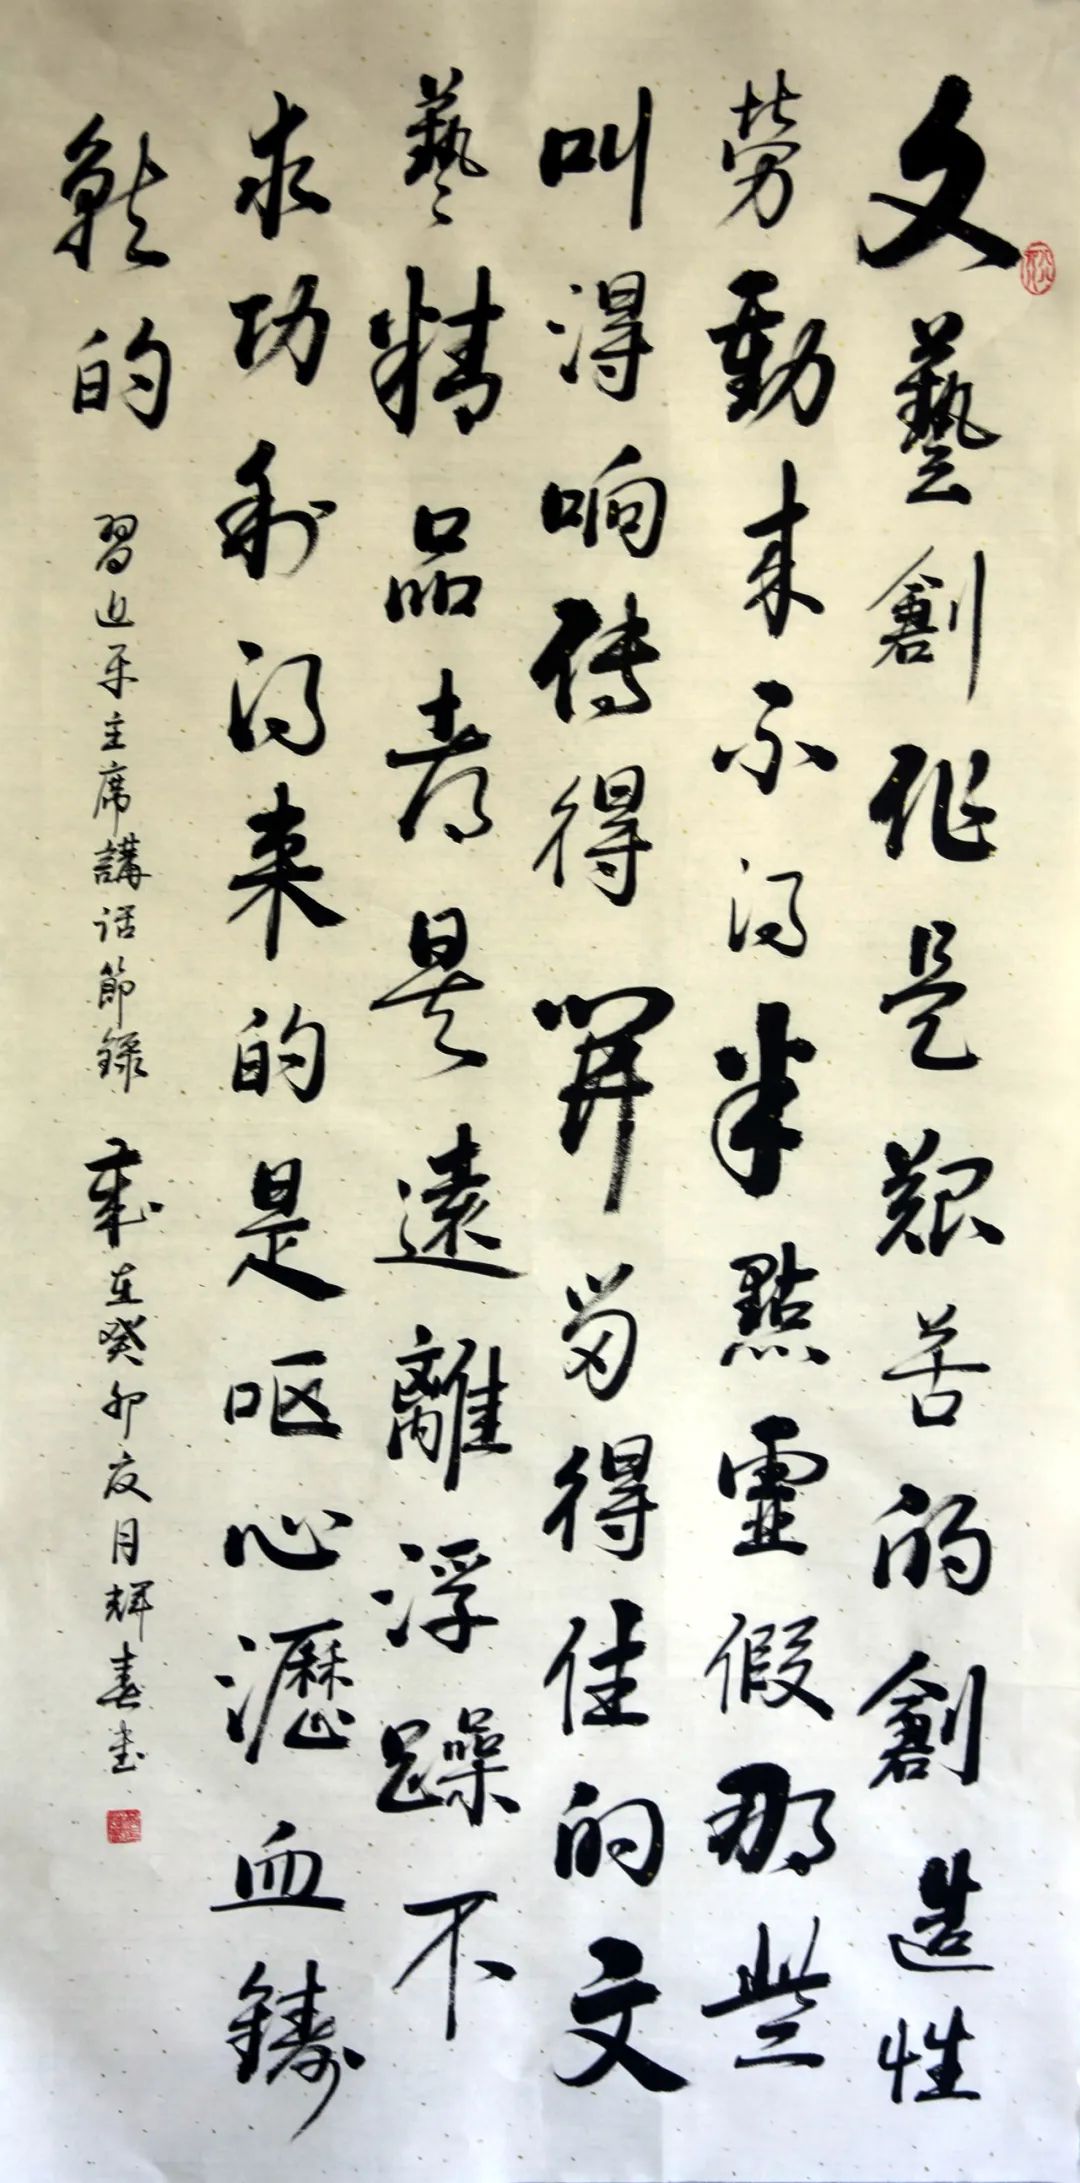 文藝創作是艱苦的創造性
勞動来不得半點虛假那些
叫得响傳得開留得住的文
藝精品都是遠離浮躁不
求功利得来的是呕心瀝血鑄
就的
習近平主席講话節録 歲在癸卯夏月輝春書